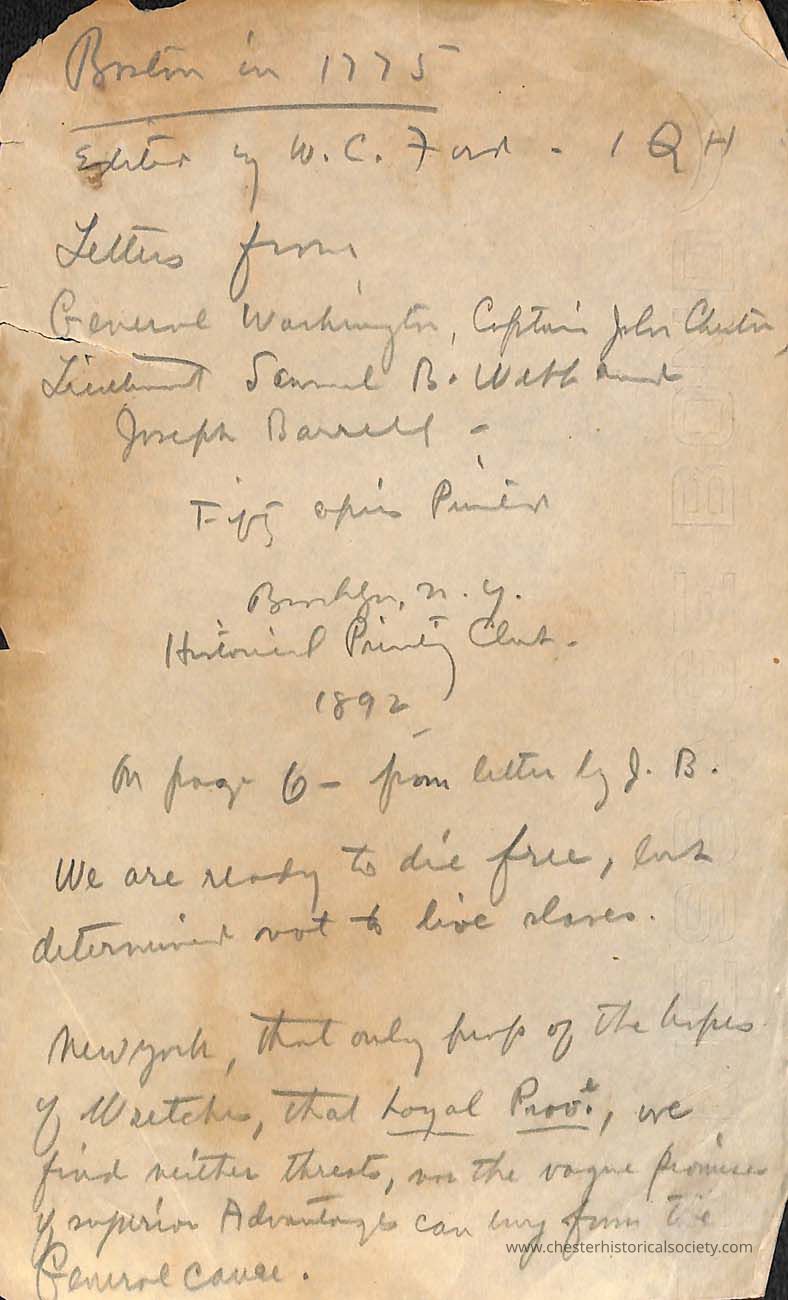 Boston in 1775
Edited by W. C. Ford - 1 Q H
Letters from
General Washington, Captain John Chester,
Lieutenant Samuel B. Webb and
Joseph Barrell -
Fifty copies Printed
Brooklyn, N. Y.
Historical Printing Club -
1892
On page 6 - from letter by J. B.
We are ready to die free, but
determined not to live slaves.
New York, that only prop of the hopes
of Wretches, that Loyal Prov.e, we
find neither threats, nor the vague promises
of superior Advantages can from the
General cause.
www.chesterhistoricalsociety.com